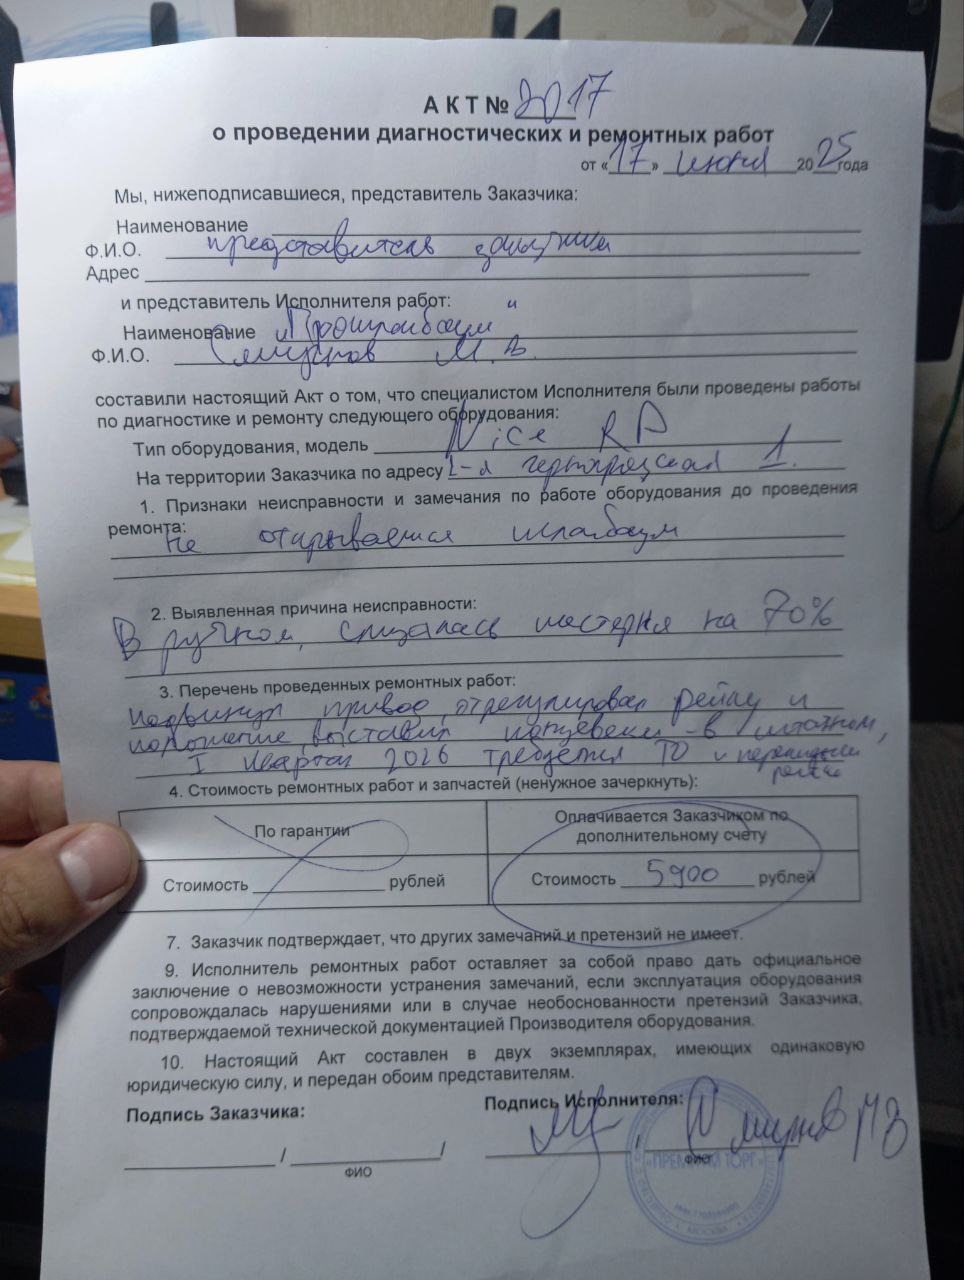 АКТ № 2017
о проведении диагностических и ремонтных работ
от «17» июня 2025 года
Мы, нижеподписавшиеся, представитель Заказчика:
Наименование
Ф.И.О. представитель заказчика
Адрес
и представитель Исполнителя работ:
Наименование
Ф.И.О. М.В.
составили настоящий Акт о том, что специалистом Исполнителя были проведены работы
по диагностике и ремонту следующего оборудования:
Тип оборудования, модель Nice RD
На территории Заказчика по адресу 1.
1. Признаки неисправности и замечания по работе оборудования до проведения
ремонта:
Не открывается шлагбаум
2. Выявленная причина неисправности:
В ручном, слизалась шестерня на 70%
3. Перечень проведенных ремонтных работ:
привод, отрегулировал рейку и
положение, выставил концевики - в штатном,
I квартал 2026 требуется ТО и
рейки
4. Стоимость ремонтных работ и запчастей (ненужное зачеркнуть):
По гарантии
Оплачивается Заказчиком по
дополнительному счету
Стоимость рублей
Стоимость 5900 рублей
7. Заказчик подтверждает, что других замечаний и претензий не имеет.
9. Исполнитель ремонтных работ оставляет за собой право дать официальное
заключение о невозможности устранения замечаний, если эксплуатация оборудования
сопровождалась нарушениями или в случае необоснованности претензий Заказчика,
подтверждаемой технической документацией Производителя оборудования.
10. Настоящий Акт составлен в двух экземплярах, имеющих одинаковую
юридическую силу, и передан обоим представителям.
Подпись Заказчика:
Подпись Исполнителя:
/ /
ФИО
/
ФИО
«ПРЕМИУМ ТОРГ»
МОСКВА